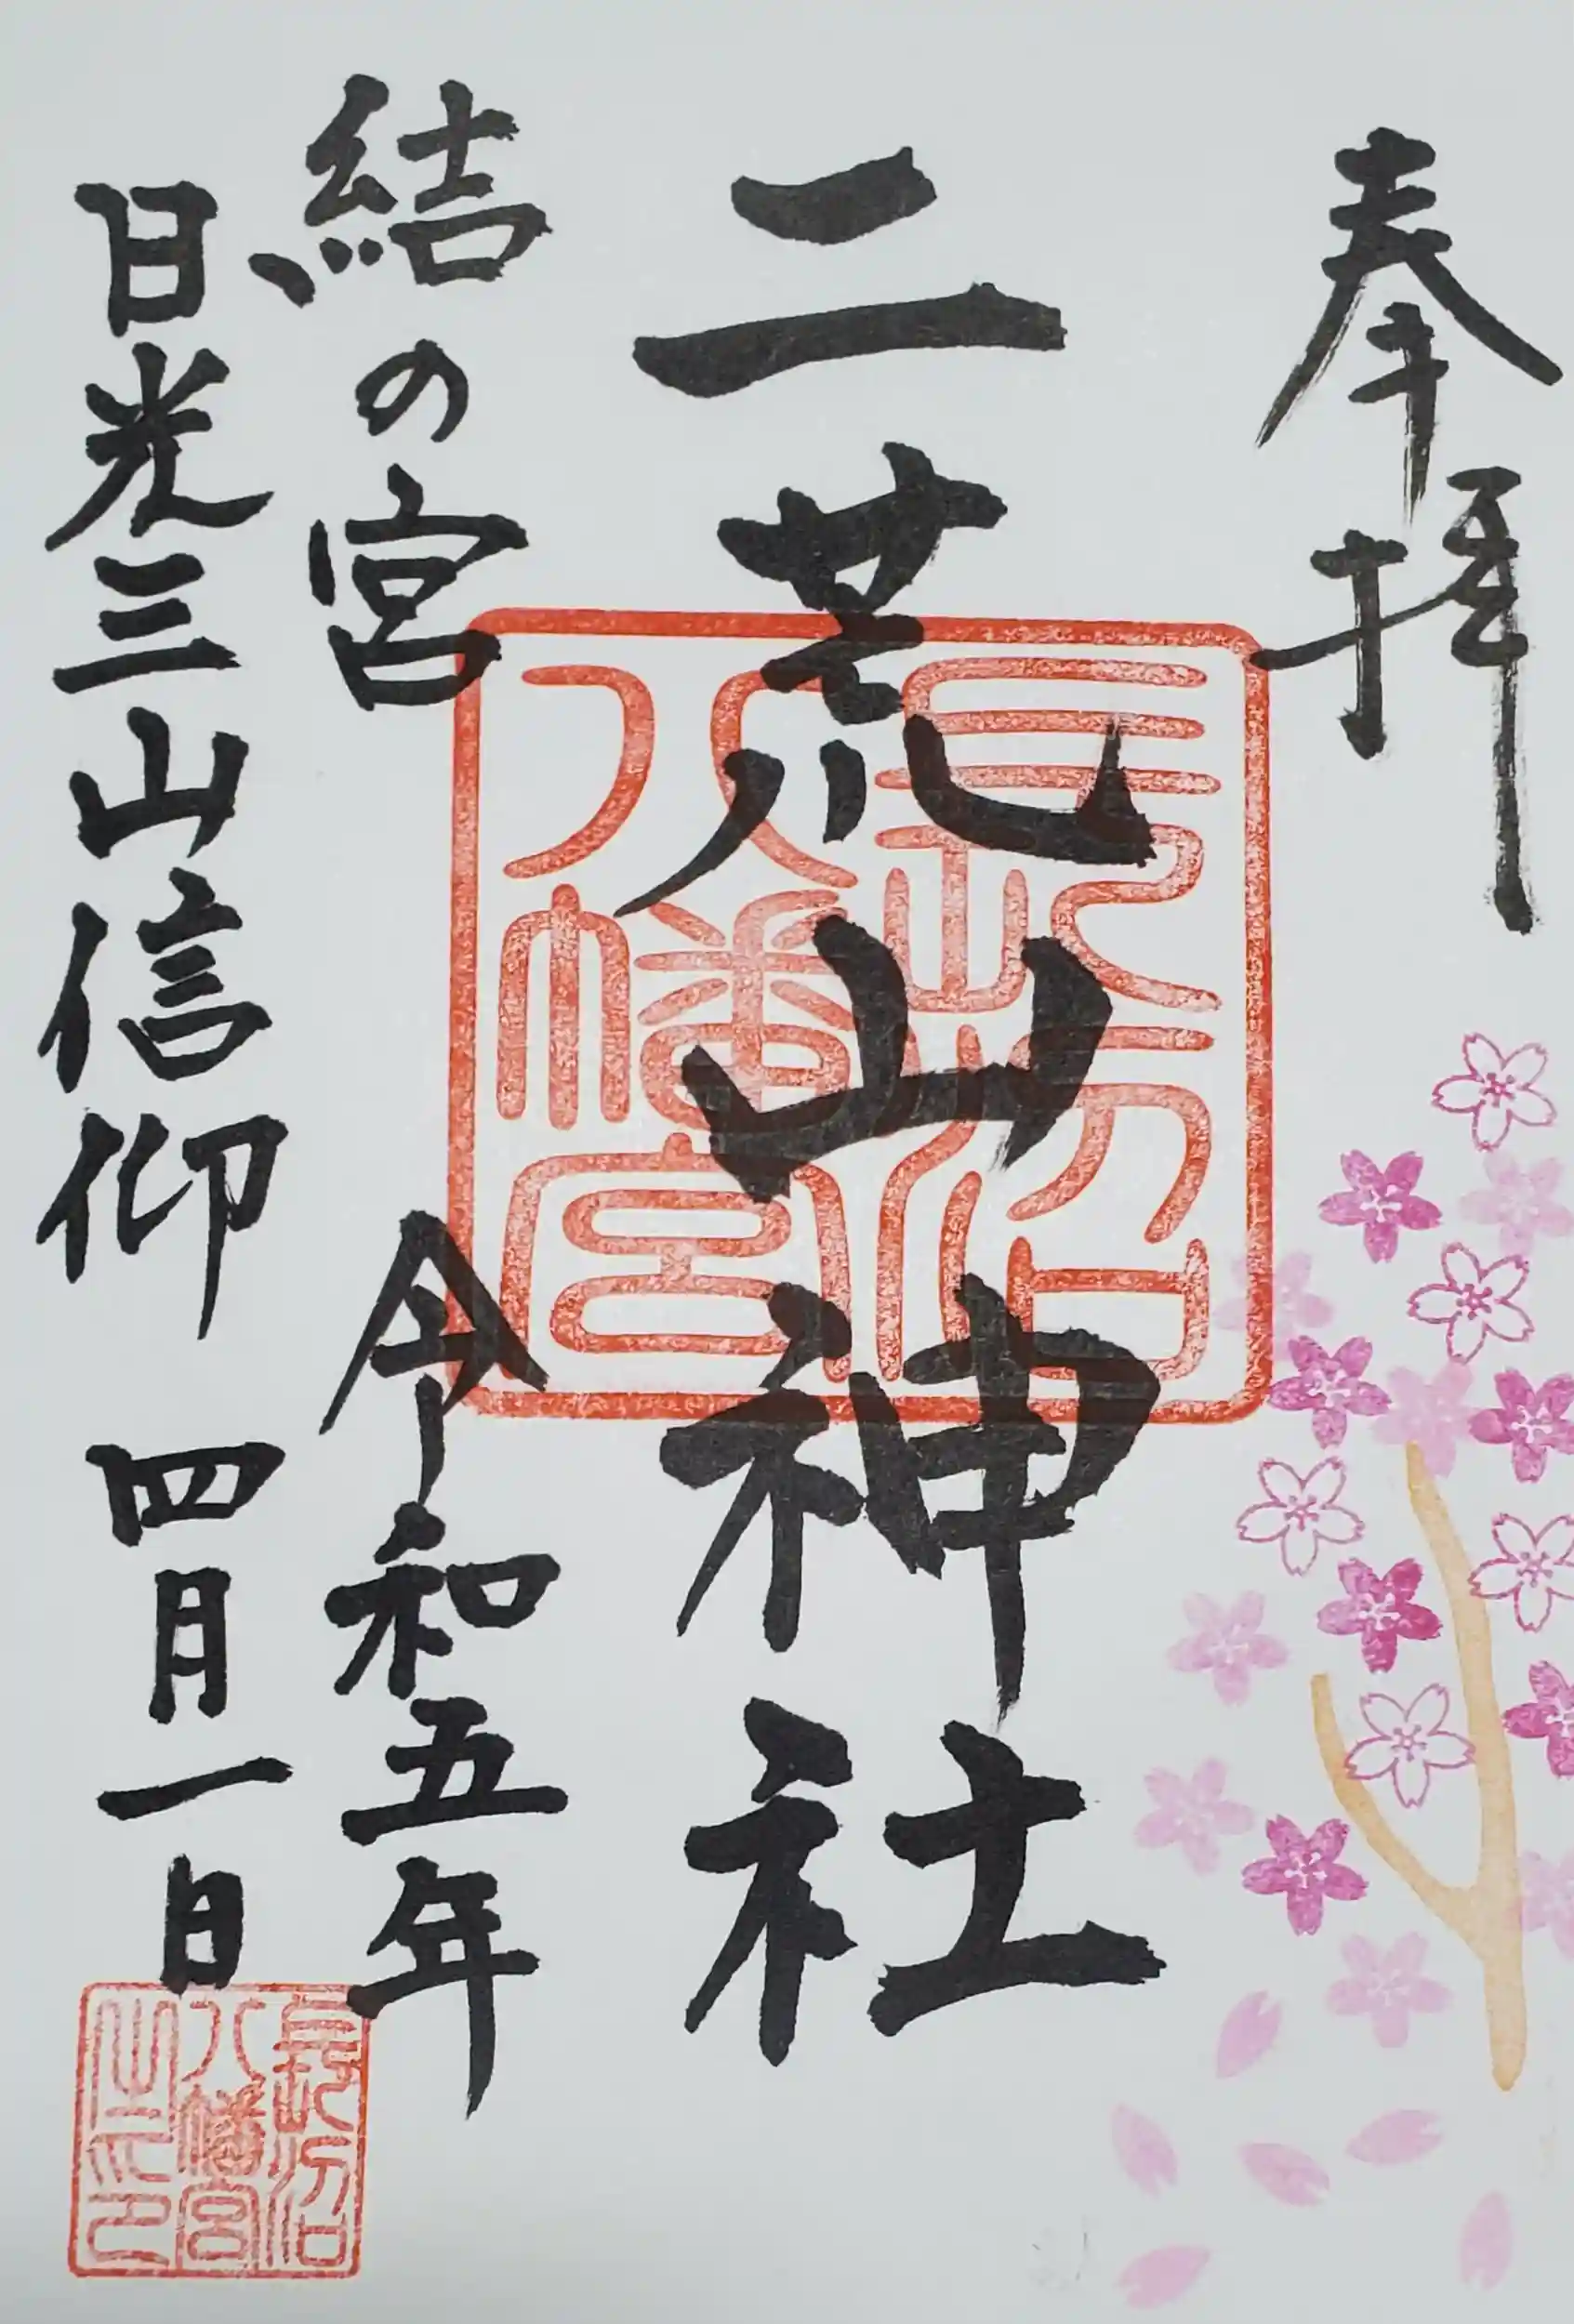 奉拝
二荒山神社
長沼八幡宮
結の宮
令和五年
日光三山信仰
四月一日
長沼八幡宮之印